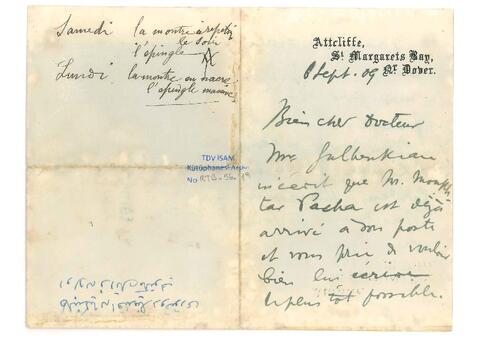 Samedi la montre à repetit.
le soir
l'épingle
Lundi la montre en nacre
l'épingle mauve
TDV ISAM
Kütüphanesi Arşivi
No RTB-56-19
Attcliffe,
St Margarets Bay,
Nr Dover.
8 Sept. 09
Bien cher Docteur
Mr Gulbenkian
m'écrit que Mr. Moukh-
tar Pacha est déjà
arrivé à son poste
et vous prie de vouloir
bien lui écrire
le plus tôt possible.